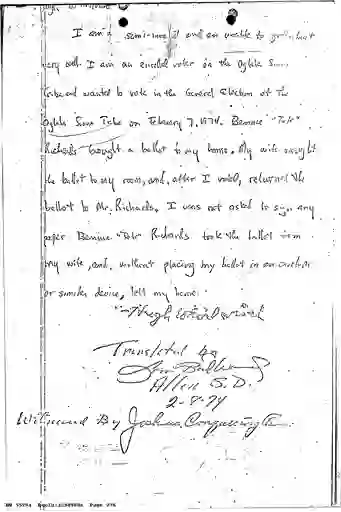 I am a semi-invalid and am unable to get about
very well. I am an enrolled voter on the Oglala S.....
Tribe and wanted to vote in the General Election of the
Oglala Sioux Tribe on February 7, 1974. Bennie "Tote"
Richards brought a ballot to my home. My wife brought
the ballot to my room, and, after I voted, returned the
ballot to Mr. Richards. I was not asked to sign any
paper Bennie "Tote" Richards took the ballot from
my wife, and, without placing my ballot in an envelope
or similar device, left my home.
Hugh
Translated by
Allen S.D.
2-8-74
Witnessed By Joshua
Page 276